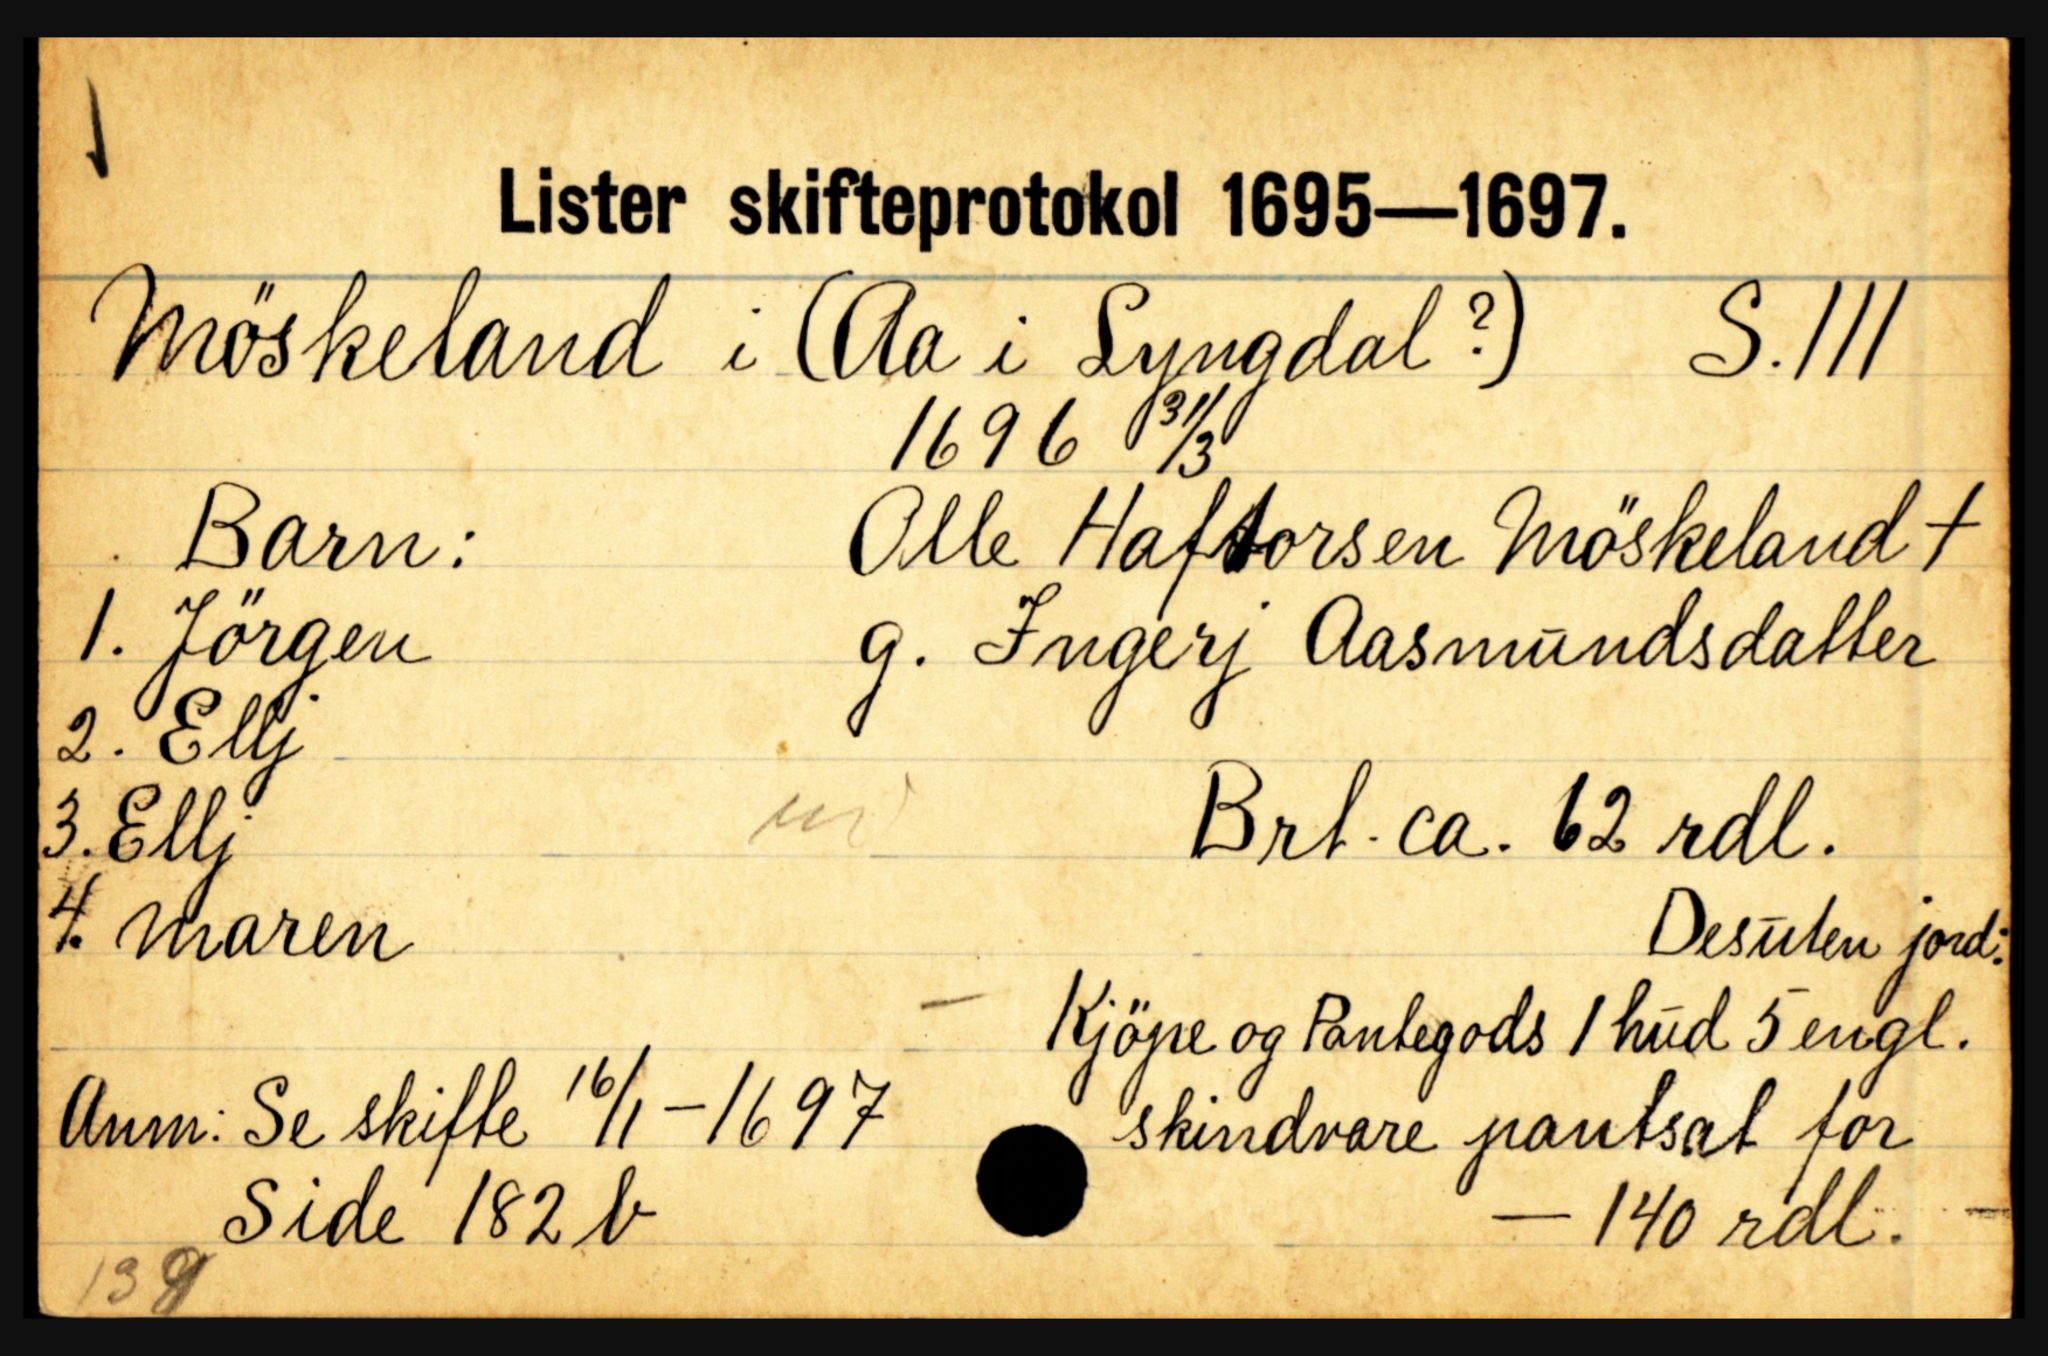 Lister skifteprotokol 1695—1697.
Möskeland i (Aa i Lyngdal?) S. 111
1696 31/3
Barn: Olle Haftorsen Möskeland +
1. Jörgen g. Ingerj Aasmundsdatter
2. Ellj
3. Ellj Brt. ca. 62 rdl.
4. Maren Desuten jord:
Kjöpe og Pantegods 1 hud 5 engl.
Anm: Se skifte 16/1-1697 skindvare pantsat for
Side 182 b — 140 rdl.